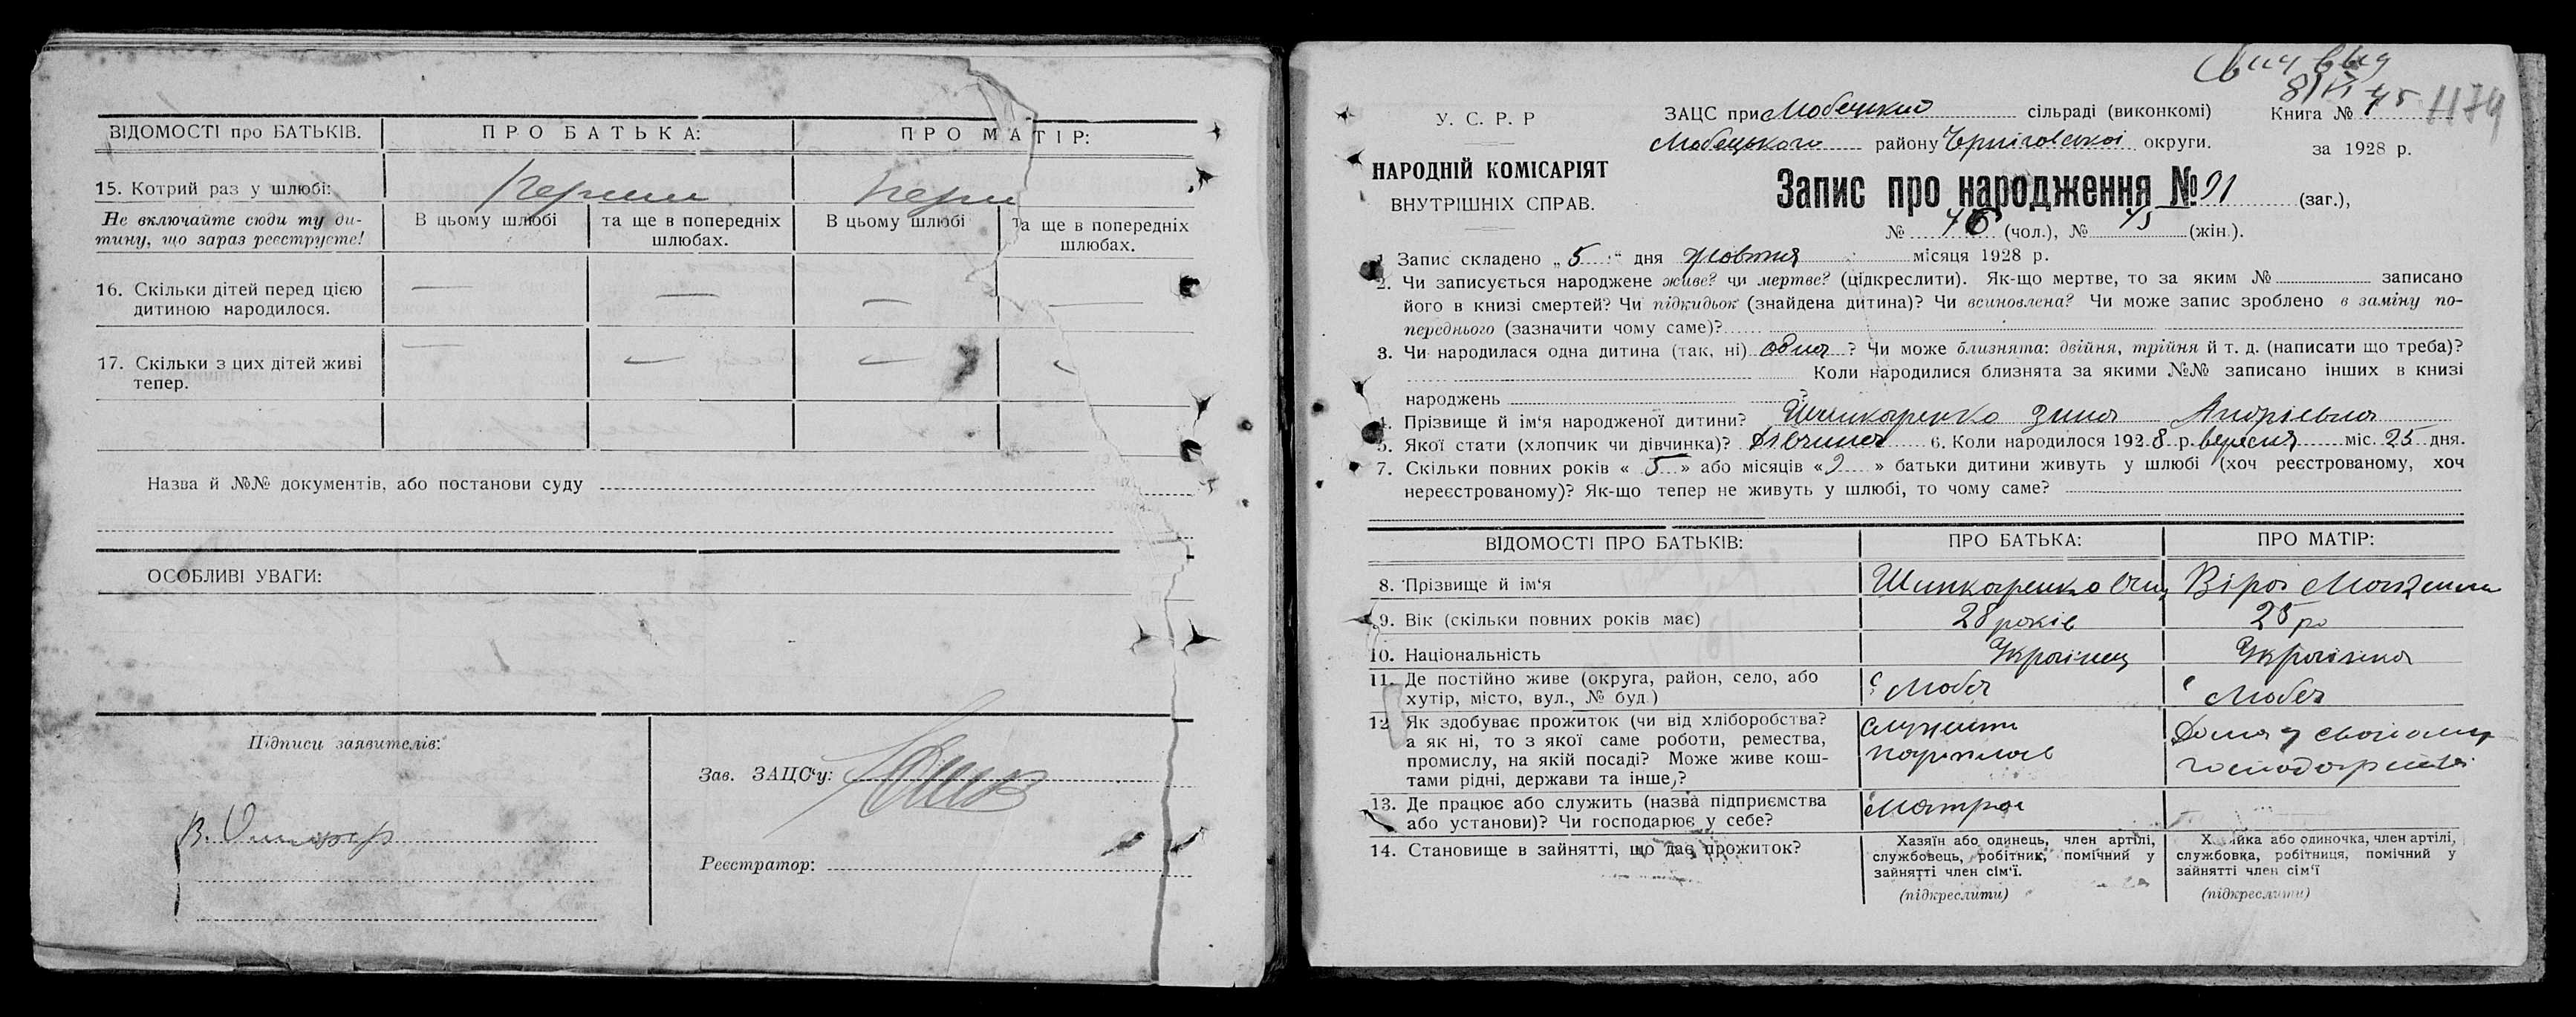 ВІДОМОСТІ про БАТЬКІВ. ПРО БАТЬКА: ПРО МАТІР:
15. Котрий раз у шлюбі:
Не включайте сюди ту ди-
тину, що зараз реєструєте!
В цьому шлюбі
та ще в попередніх
шлюбах.
В цьому шлюбі
та ще в попередніх
шлюбах.
16. Скільки дітей перед цією
дитиною народилося.
— — — —
17. Скільки з цих дітей живі
тепер.
— — — —
Назва й №№ документів, або постанови суду
ОСОБЛИВІ УВАГИ:
Підписи заявителів:
Зав. ЗАЦС‘у:
Реєстратор:
8/VI 45 1179
У. С. Р. Р
НАРОДНІЙ КОМІСАРІЯТ
ВНУТРІШНІХ СПРАВ.
ЗАЦС при сільраді (виконкомі)
Любецького району Чернігівської округи.
Книга №
за 1928 р.
Запис про народження № 91 (заг.),
№ 46 (чол.), № 45 (жін.).
1. Запис складено „ 5 “ дня жовтня місяця 1928 р.
2. Чи записується народжене живе? чи мертве? (підкреслити). Як-що мертве, то за яким № записано
його в книзі смертей? Чи підкидьок (знайдена дитина)? Чи всиновлена? Чи може запис зроблено в заміну по-
переднього (зазначити чому саме)?
3. Чи народилася одна дитина (так, ні) одна ? Чи може близнята: двійня, трійня й т. д. (написати що треба)?
Коли народилися близнята за якими №№ записано інших в книзі
народжень
4. Прізвище й ім‘я народженої дитини? Шинкаренко Зина Андріевна
5. Якої стати (хлопчик чи дівчинка)? Дівчина 6. Коли народилося 1928 р. вересня міс. 25 дня.
7. Скільки повних років « 5 » або місяців « 9 » батьки дитини живуть у шлюбі (хоч реєстрованому, хоч
нереєстрованому)? Як-що тепер не живуть у шлюбі, то чому саме?
ВІДОМОСТІ ПРО БАТЬКІВ: ПРО БАТЬКА: ПРО МАТІР:
8. Прізвище й ім‘я Шинкаренко Віра
9. Вік (скільки повних років має) 28 років 25 ро
10. Національність Українец Українка
11. Де постійно живе (округа, район, село, або
хутір, місто, вул., № буд.)
с Любеч
с Любеч
12. Як здобуває прожиток (чи від хліборобства?
а як ні, то з якої саме роботи, ремества,
промислу, на якій посаді? Може живе кош-
тами рідні, держави та інше,?
Дома у своїому
господарстві
13. Де працює або служить (назва підприємства
або установи)? Чи господарює у себе?
Матрос
14. Становище в зайнятті, що дає прожиток?
Хазяїн або одинець, член артілі,
службовець, робітник, помічний у
зайнятті член сім‘ї.
(підкреслити)
Хазяйка або одиночка, член артілі,
службовка, робітниця, помічний у
зайнятті член сім‘ї
(підкреслити)